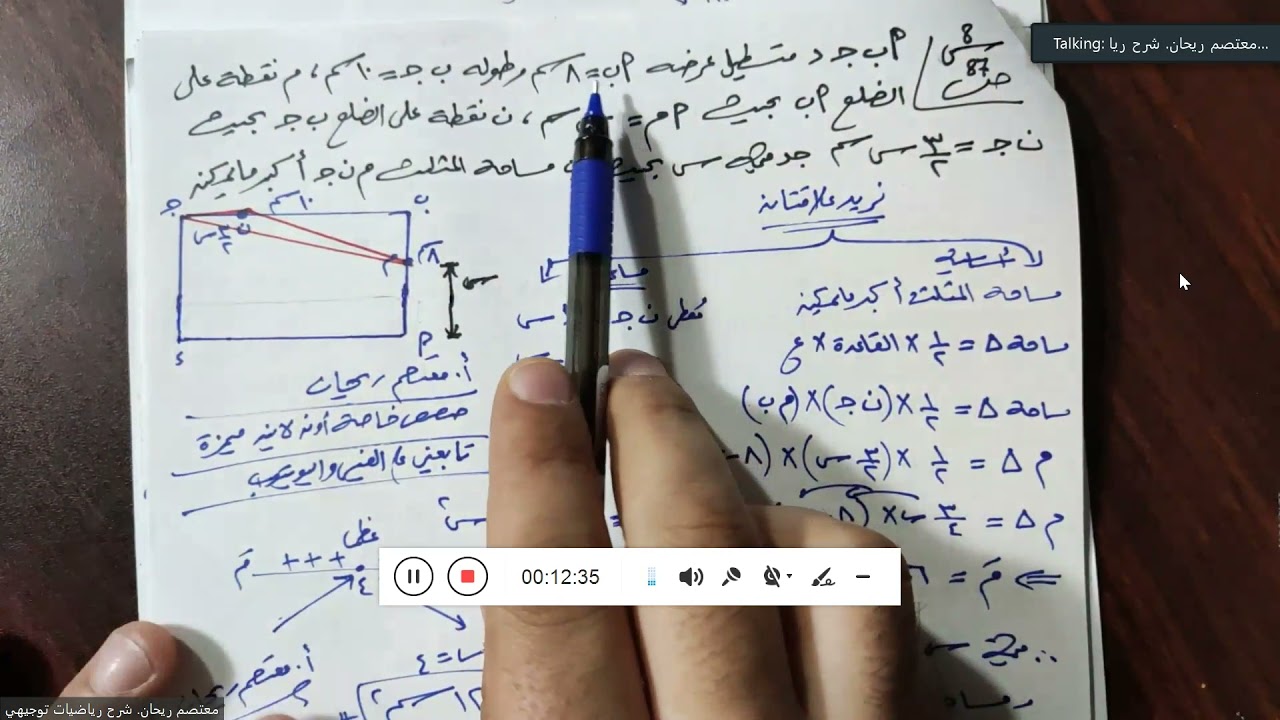 Talking: معتصم ريحان. شرح ريا...
س 8
ص 87
م ب جـ د مستطيل عرضه م ب = ٨ سم وطوله ب جـ = ١٠ سم ، م نقطة على
الضلع م ب بحيث م م = سم ، ن نقطة على الضلع ب جـ بحيث
ن جـ = ٣/٢ س سم جد قيمة س بحيث مساحة المثلث م ن جـ أكبر ما يمكن
نريد علاقتان
لأساسية
مساحة المثلث أكبر ما يمكن
مساحة Δ = ١/٢ × القاعدة × ع
مساحة Δ = ١/٢ × (ن جـ) × (م ب)
م Δ = ١/٢ × (٣/٢ س) × (٨ -
م Δ = ٣/٤ س × (٨
⇐ مَ =
∴ قيمة س
ومسا
مسا
معطى ن جـ س
جـ
١٠ سم
ب
ن
٣/٢ س
م
٨ سم
س
م
د
أ. معتصم ريحان
حصص خاصة أونلاين مميزة
تابعني على الفيس واليوتيوب
س٢
عظمى
مَ + + +
٤
س = ٤
١٢ سم٢
أ. معتصم ريحان
00:12:35
معتصم ريحان. شرح رياضيات توجيهي